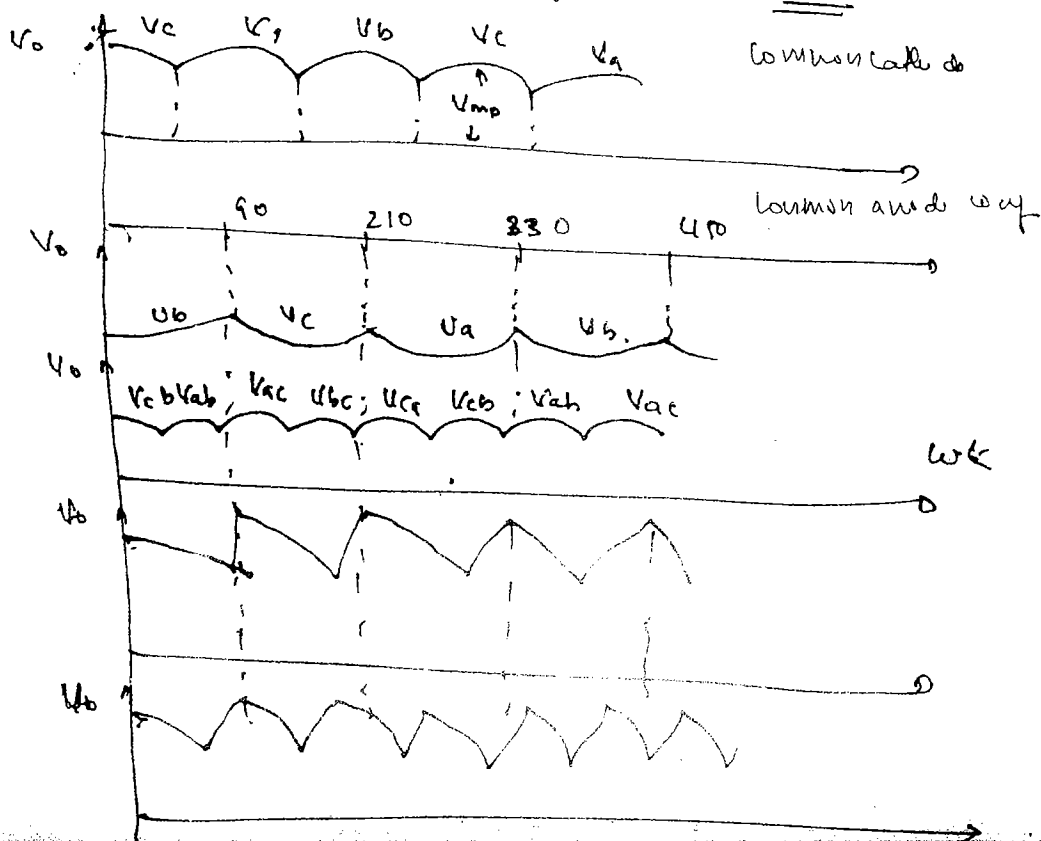 Vo Vc Va Vb Vc Va
Common
Vmp
90 210 330
Common
Vo
Vb Vc Va Vb
Vo
Vcb Vab Vac Vbc Vca Vcb Vab Vac
wt
Vo
Vo